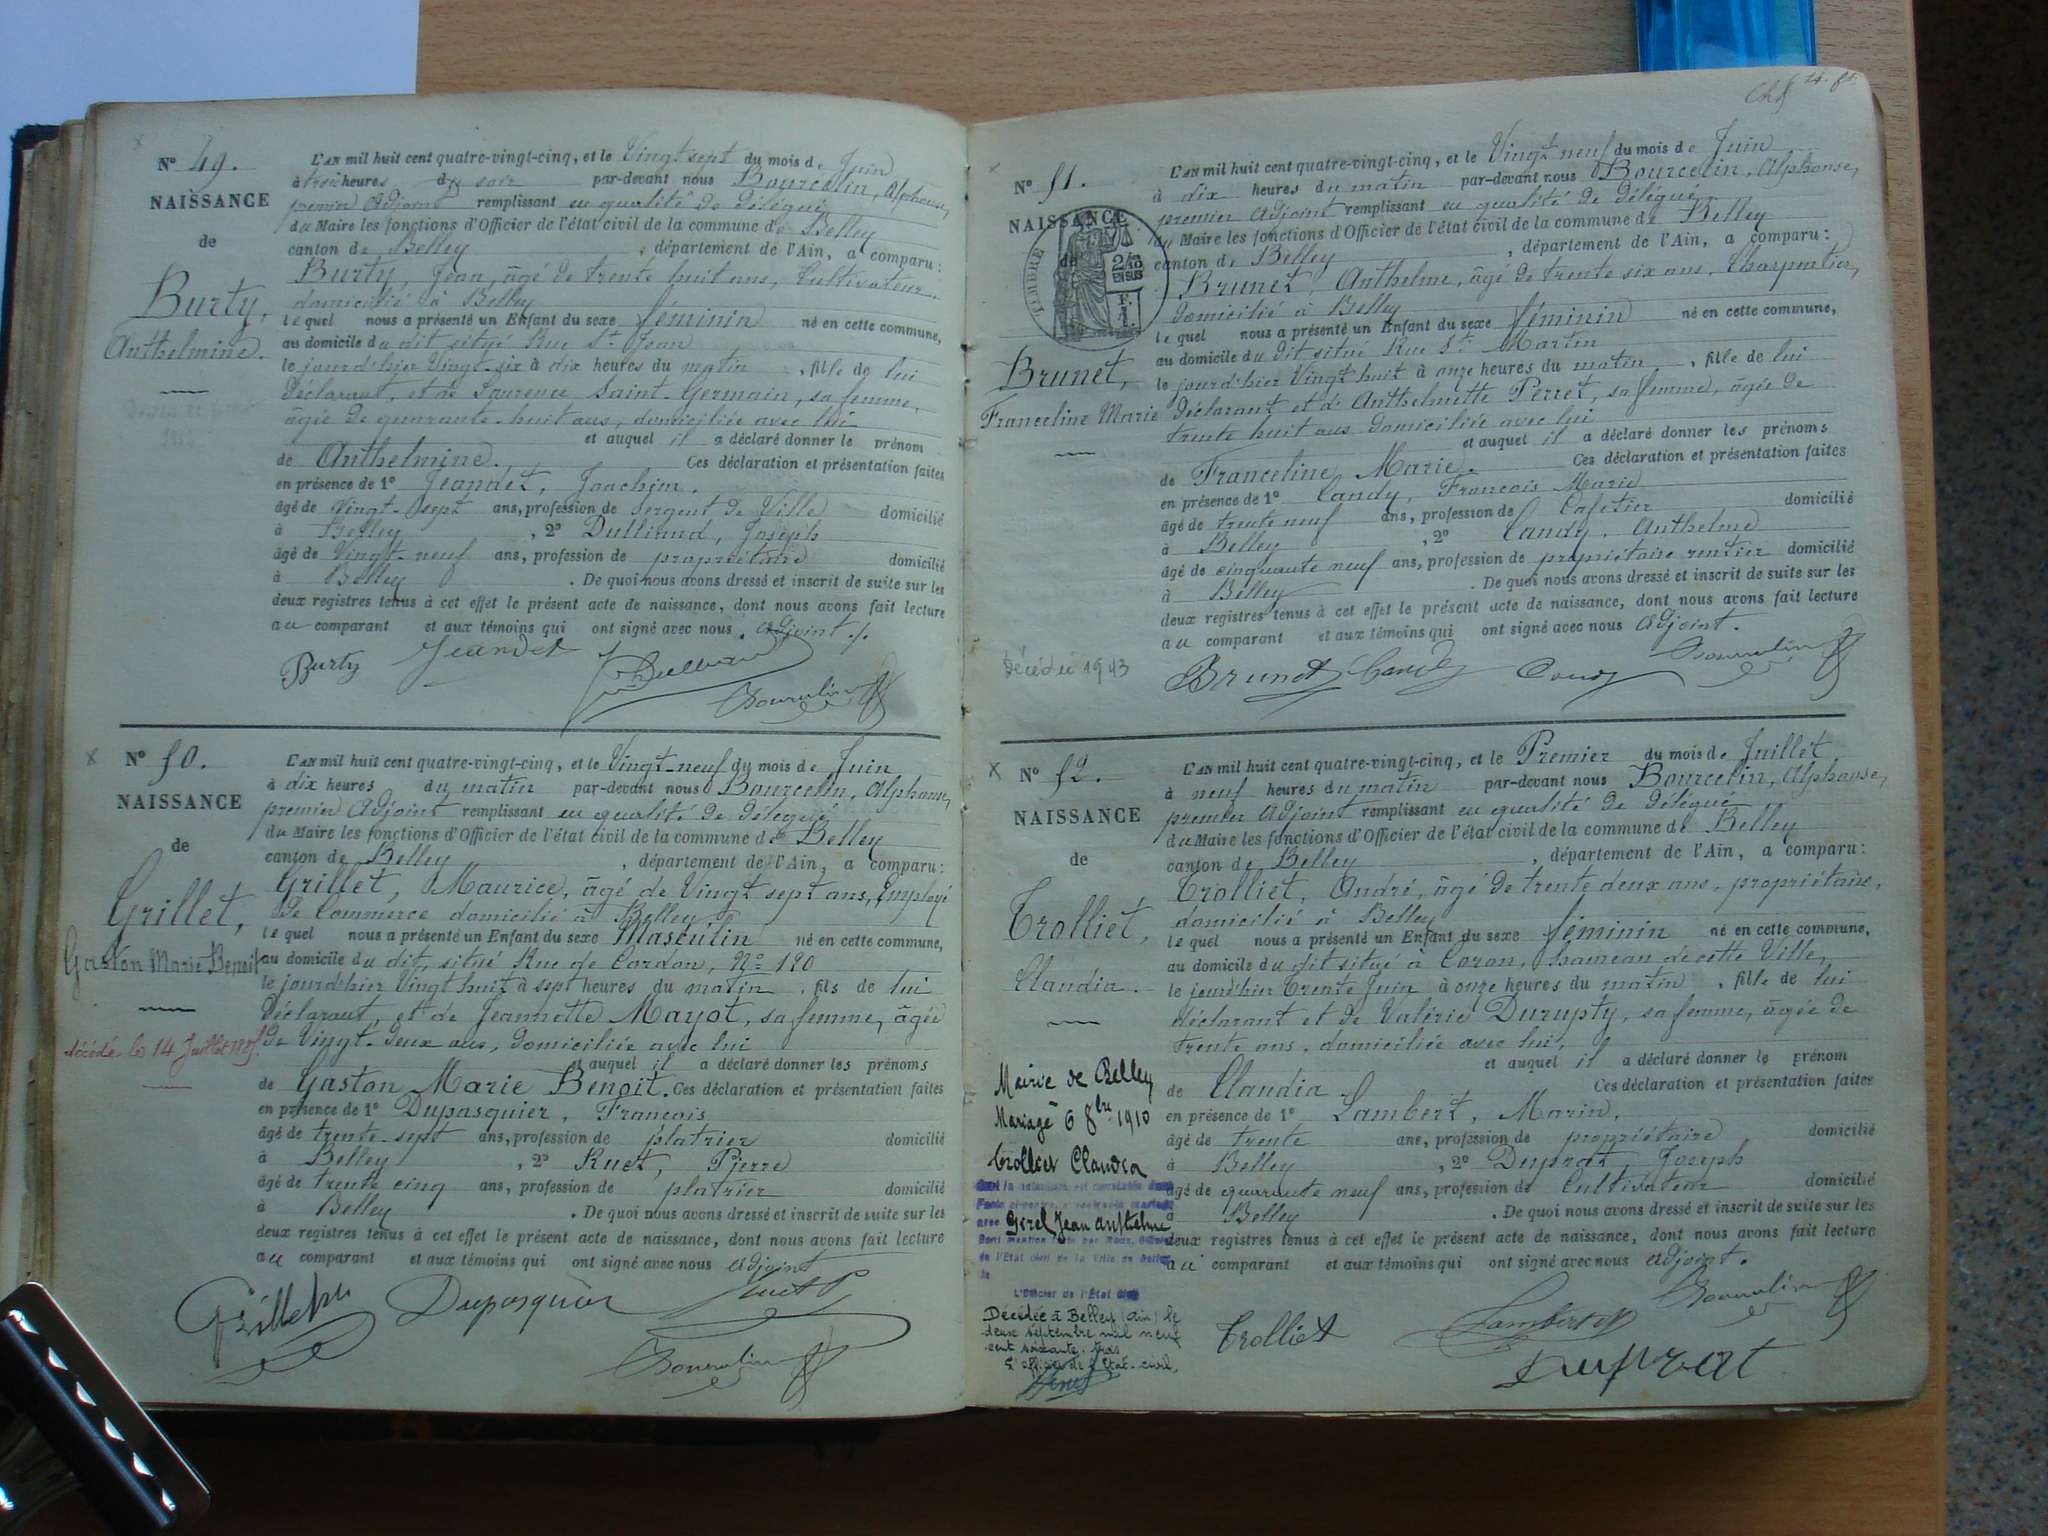 N° 49.
NAISSANCE
de
Burty,
Anthelmine.
L'AN mil huit cent quatre-vingt-cinq, et le Vingt sept du mois de Juin
à trois heures du soir par-devant nous Bourcelin, Alphonse,
premier Adjoint remplissant en qualité de délégué
du Maire les fonctions d'Officier de l'état civil de la commune de Belley
canton de Belley, département de l'Ain, a comparu:
Burty, Jean, âgé de trente huit ans, Cultivateur,
domicilié à Belley
lequel nous a présenté un Enfant du sexe féminin né en cette commune,
au domicile du dit situé Rue St Jean
le jourd'hier Vingt-six à dix heures du matin, fille de lui
déclarant, et de Laurence Saint-Germain, sa femme,
âgée de quarante-huit ans, domiciliée avec lui
et auquel il a déclaré donner le prénom
de Anthelmine. Ces déclaration et présentation faites
en présence de 1° Jeandet, Joachim.
âgé de Vingt-sept ans, profession de Sergent de Ville domicilié
à Belley, 2° Dulliand, Joseph
âgé de Vingt-neuf ans, profession de propriétaire domicilié
à Belley. De quoi nous avons dressé et inscrit de suite sur les
deux registres tenus à cet effet le présent acte de naissance, dont nous avons fait lecture
au comparant et aux témoins qui ont signé avec nous, adjoint ./.
Burty Jeandet Dulliand
Bourcelin
N° 50.
NAISSANCE
de
Grillet,
Gaston Marie Benoit
décédé le 14 Juillet 1885.
L'AN mil huit cent quatre-vingt-cinq, et le Vingt-neuf du mois de Juin
à dix heures du matin par-devant nous Bourcelin, Alphonse,
premier Adjoint remplissant en qualité de délégué
du Maire les fonctions d'Officier de l'état civil de la commune de Belley
canton de Belley, département de l'Ain, a comparu:
Grillet, Maurice, âgé de Vingt sept ans, Employé
de Commerce domicilié à Belley
lequel nous a présenté un Enfant du sexe Masculin né en cette commune,
au domicile du dit, situé Rue de Cordon, N° 120
le jourd'hier Vingt huit à sept heures du matin, fils de lui
déclarant, et de Jeannette Mayot, sa femme, âgée
de Vingt-deux ans, domiciliée avec lui
et auquel il a déclaré donner les prénoms
de Gaston Marie Benoit. Ces déclaration et présentation faites
en présence de 1° Dupasquier, François
âgé de trente-sept ans, profession de plâtrier domicilié
à Belley, 2° Ruet, Pierre
âgé de trente cinq ans, profession de platrier domicilié
à Belley. De quoi nous avons dressé et inscrit de suite sur les
deux registres tenus à cet effet le présent acte de naissance, dont nous avons fait lecture
au comparant et aux témoins qui ont signé avec nous adjoint
Grillet Dupasquier Ruet P
Bourcelin
N° 51.
NAISSANCE
de
TIMBRE
Brunet,
Franceline Marie
décédée 1943
L'AN mil huit cent quatre-vingt-cinq, et le Vingt neuf du mois de Juin
à dix heures du matin par-devant nous Bourcelin, Alphonse,
premier Adjoint remplissant en qualité de délégué
du Maire les fonctions d'Officier de l'état civil de la commune de Belley
canton de Belley, département de l'Ain, a comparu:
Brunet Anthelme, âgé de trente six ans, Charpentier,
domicilié à Belley
lequel nous a présenté un Enfant du sexe féminin né en cette commune,
au domicile du dit situé Rue St Martin
le jourd'hier Vingt huit à onze heures du matin, fille de lui
déclarant et d'Anthelmette Perret, sa femme, âgée de
trente huit ans domiciliée avec lui
et auquel il a déclaré donner les prénoms
de Franceline Marie. Ces déclaration et présentation faites
en présence de 1° Candy, François Marie
âgé de trente neuf ans, profession de Cafetier domicilié
à Belley, 2° Candy, Anthelme
âgé de cinquante neuf ans, profession de propriétaire rentier domicilié
à Belley. De quoi nous avons dressé et inscrit de suite sur les
deux registres tenus à cet effet le présent acte de naissance, dont nous avons fait lecture
au comparant et aux témoins qui ont signé avec nous adjoint.
Brunet Candy Candy Bourcelin
N° 52.
NAISSANCE
de
Trolliet,
Claudia.
Mairie de Belley
Mariage 6 8bre 1910
Trolliet Claudia
avec Gerel Jean Anthelme
de l'Etat civil de la Ville de Belley
le
L'Officier de l'Etat Civil
Décédée à Belley (Ain) le
deux septembre mil neuf
cent soixante-trois
L'officier de l'Etat-civil,
L'AN mil huit cent quatre-vingt-cinq, et le Premier du mois de Juillet
à neuf heures du matin par-devant nous Bourcelin, Alphonse,
premier Adjoint remplissant en qualité de délégué
du Maire les fonctions d'Officier de l'état civil de la commune de Belley
canton de Belley, département de l'Ain, a comparu:
Trolliet, André, âgé de trente deux ans, propriétaire,
domicilié à Belley
lequel nous a présenté un Enfant du sexe féminin né en cette commune,
au domicile du dit situé à Coron, hameau de cette Ville,
le jourd'hier trente Juin à onze heures du matin, fille de lui
déclarant et de Valérie Durupty, sa femme, âgée de
trente ans, domiciliée avec lui,
et auquel il a déclaré donner le prénom
de Claudia Ces déclaration et présentation faites
en présence de 1° Lambert, Marin,
âgé de trente ans, profession de propriétaire domicilié
à Belley, 2° Duprat, Joseph
âgé de quarante neuf ans, profession de Cultivateur domicilié
à Belley. De quoi nous avons dressé et inscrit de suite sur les
deux registres tenus à cet effet le présent acte de naissance, dont nous avons fait lecture
au comparant et aux témoins qui ont signé avec nous adjoint.
Trolliet Lambert Bourcelin
Duprat